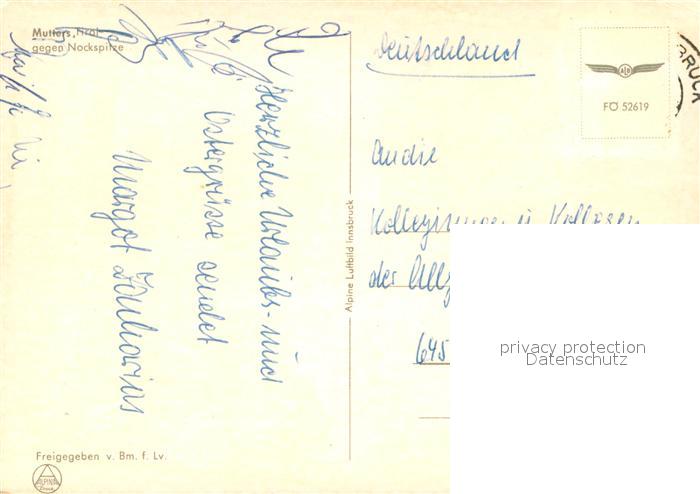 Mutters, Tirol
gegen Nockspitze
Herzliche Urlaubs- und
Ostergrüsse sendet
Margot
Freigegeben v. Bm. f. Lv.
ALPINE
Alpine Luftbild Innsbruck
Deutschland
ALB
FÖ 52619
BRUCK
An die
Kolleginnen u. Kollegen
der Allg
645
privacy protection
Datenschutz